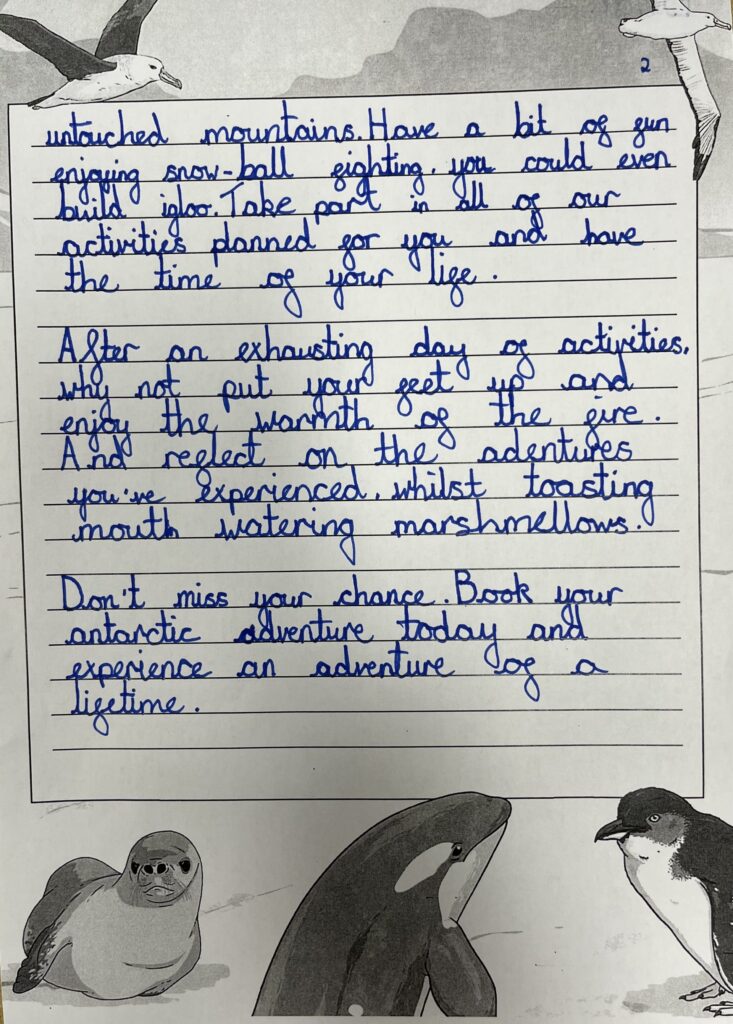 2
untouched mountains. Have a bit of fun
enjoying snow-ball fighting. you could even
build igloo. Take part in all of our
activities planned for you and have
the time of your life.
After an exhausting day of activities,
why not put your feet up and
enjoy the warmth of the fire.
And reflect on the adentures
you've experienced, whilst toasting
mouth watering marshmellows.
Don't miss your chance. Book your
antarctic adventure today and
experience an adventure of a
lifetime.